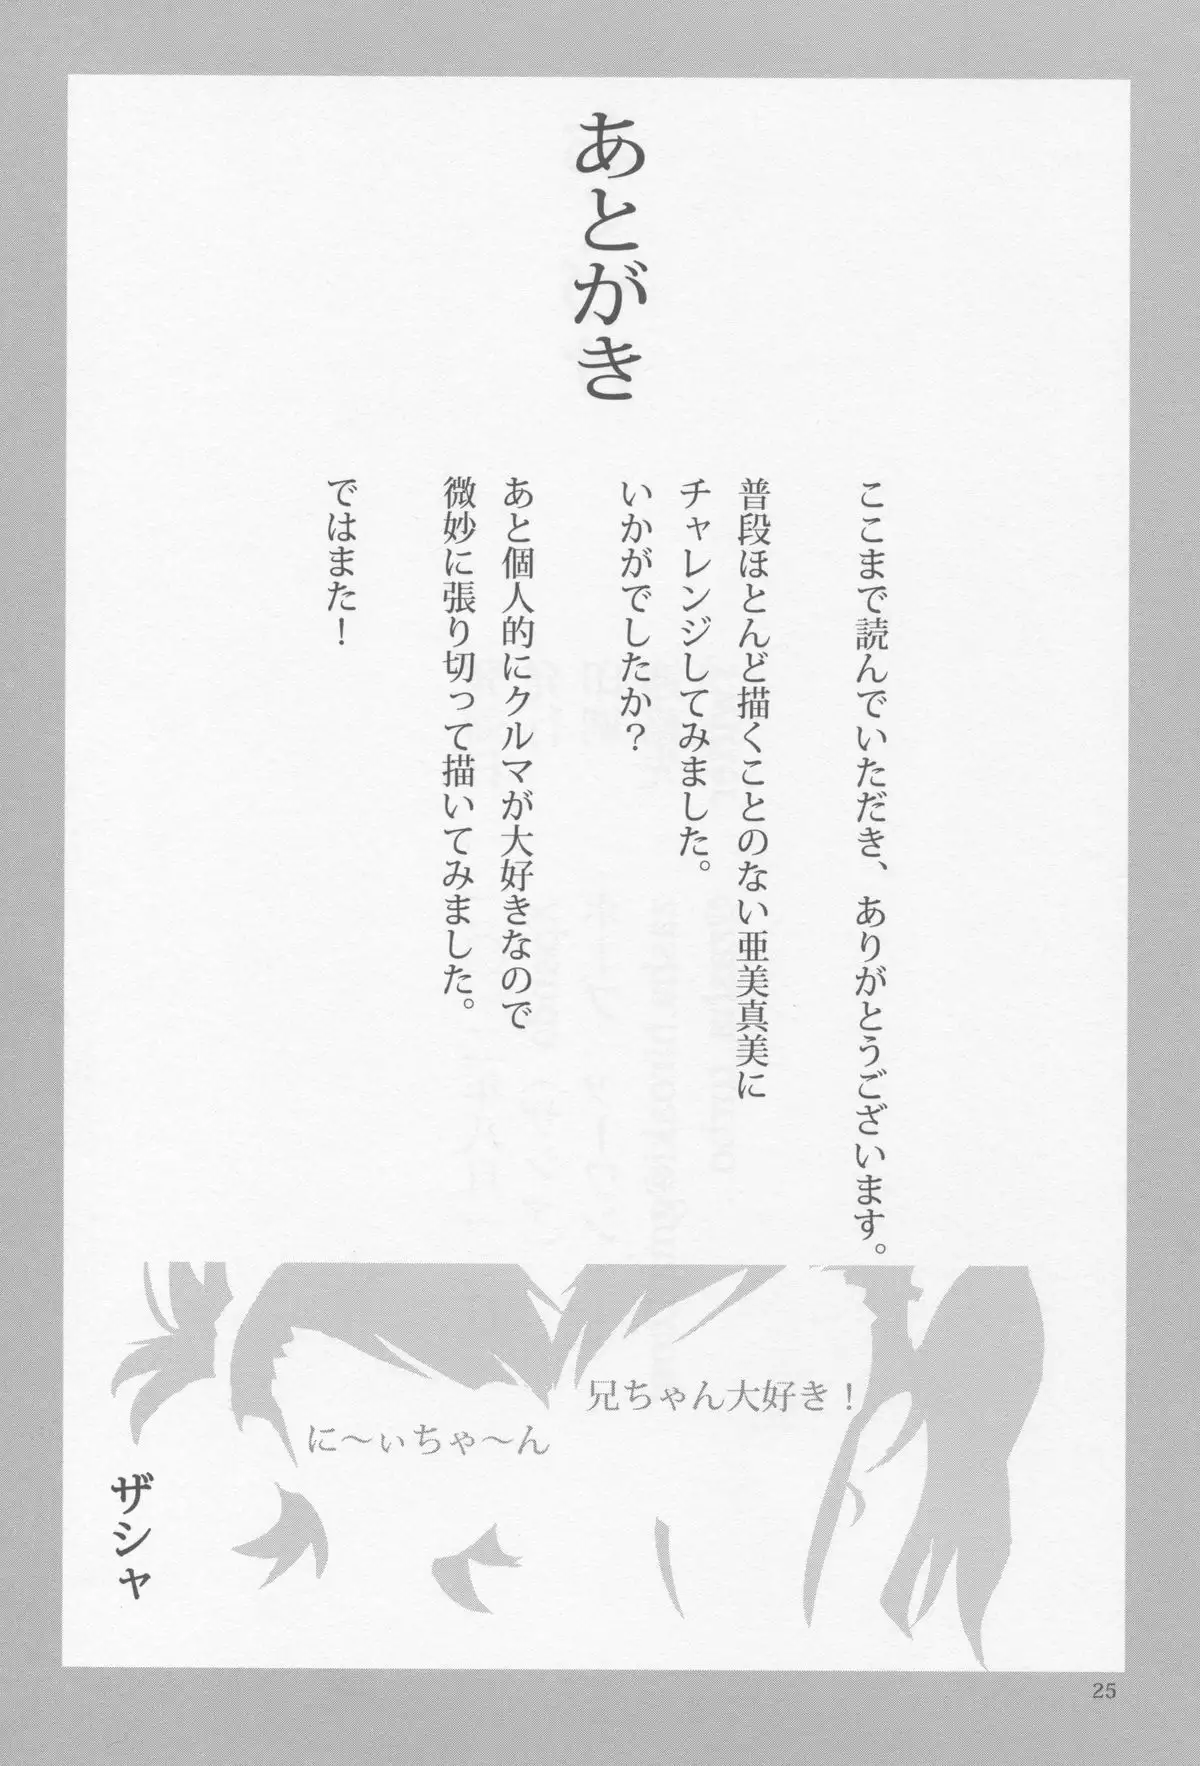 あとがき
ここまで読んでいただき、ありがとうございます。
普段ほとんど描くことのない亜美真美に
チャレンジしてみました。
いかがでしたか？
あと個人的にクルマが大好きなので
微妙に張り切って描いてみました。
ではまた！
兄ちゃん大好き！
に～ぃちゃ～ん
ザシャ
25